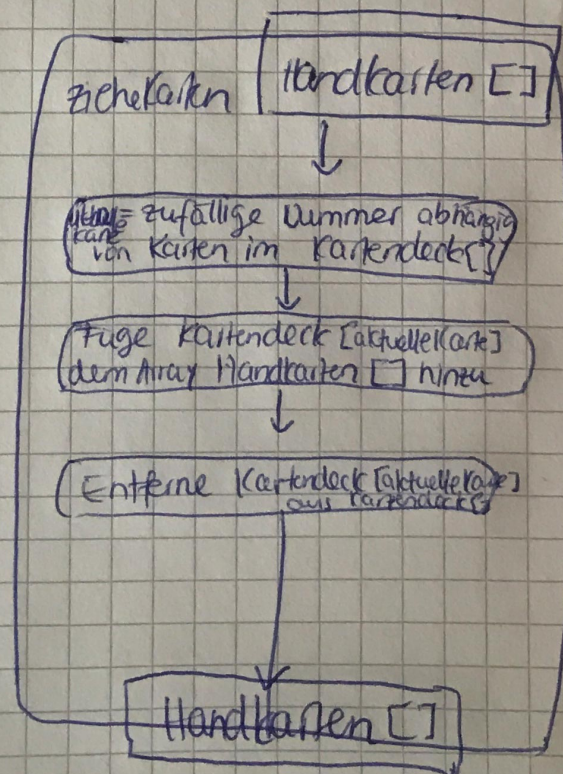 zieheKarten
Handkarten []
= zufällige Nummer abhängig
von Karten im Kartendeck[]
Füge Kartendeck [aktuelleKarte]
dem Array Handkarten [] hinzu
Entferne Kartendeck [aktuelleKarte]
aus Kartendeck[]
Handkarten []